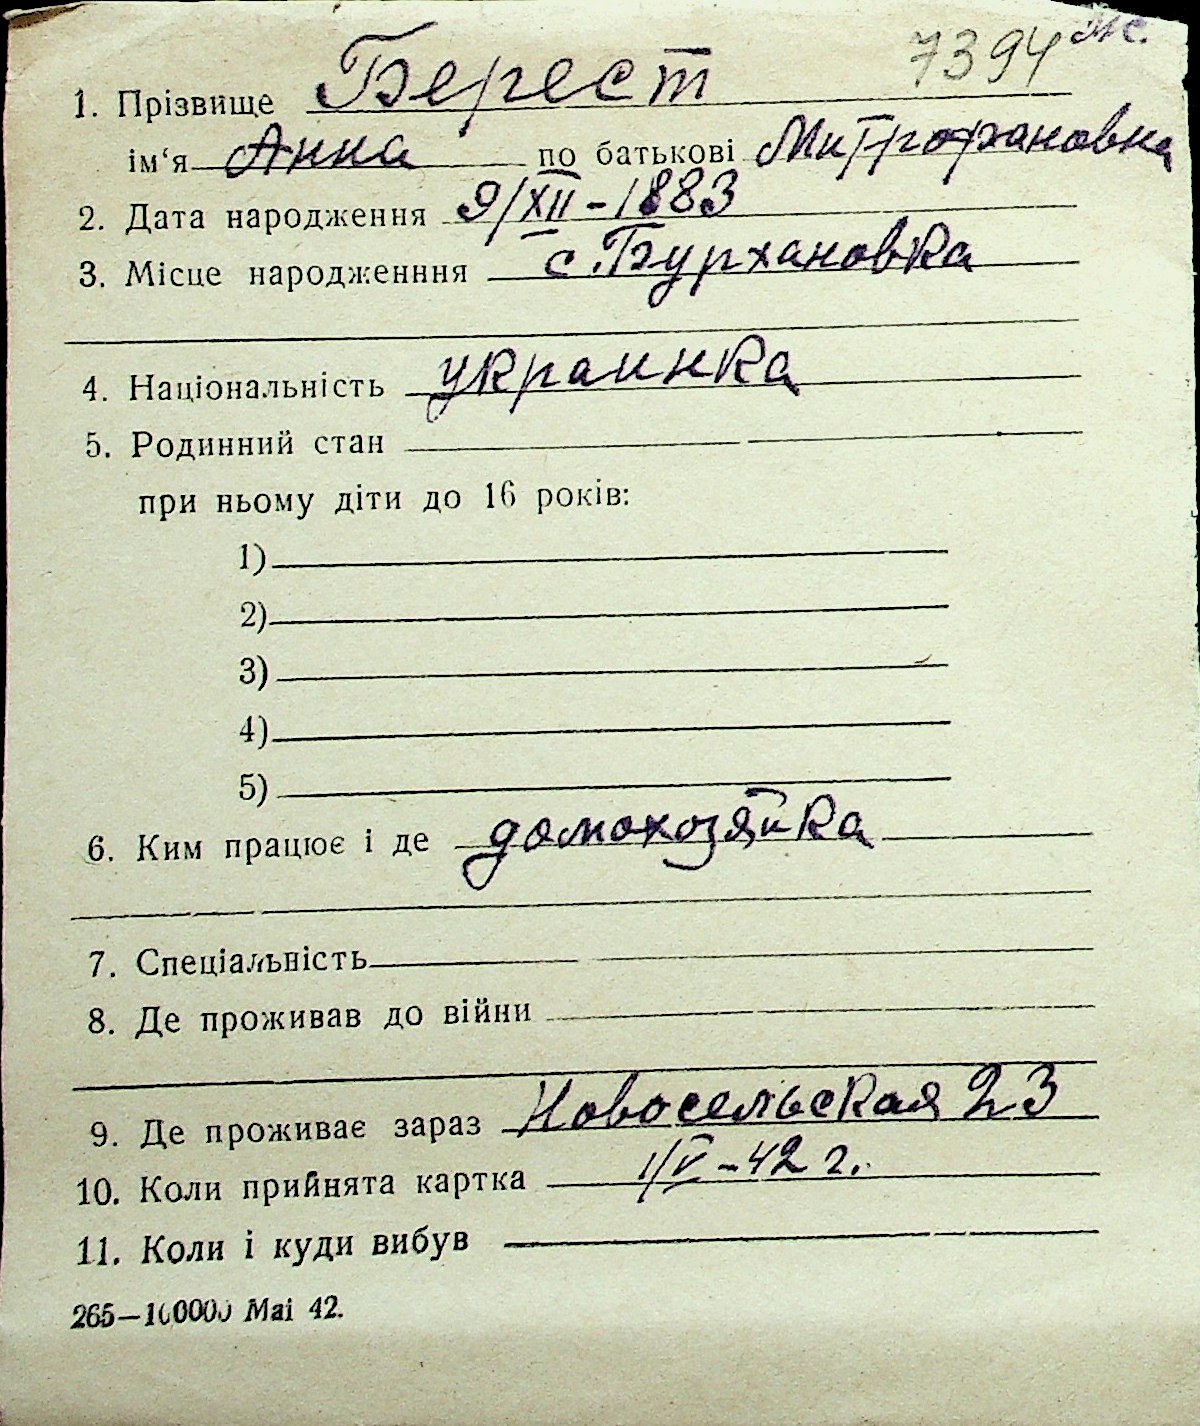 7394 Жс.
1. Прізвище Берест
ім‘я Анна по батькові Митрофановна
2. Дата народження 9/XII - 1883
3. Місце народженння с. Бурхановка
4. Національність украинка
5. Родинний стан
при ньому діти до 16 років:
1)
2)
3)
4)
5)
6. Ким працює і де домохозяйка
7. Спеціальність
8. Де проживав до війни
9. Де проживає зараз Новосельская 23
10. Коли прийнята картка 1/V - 42 г.
11. Коли і куди вибув
265—100000 Mai 42.